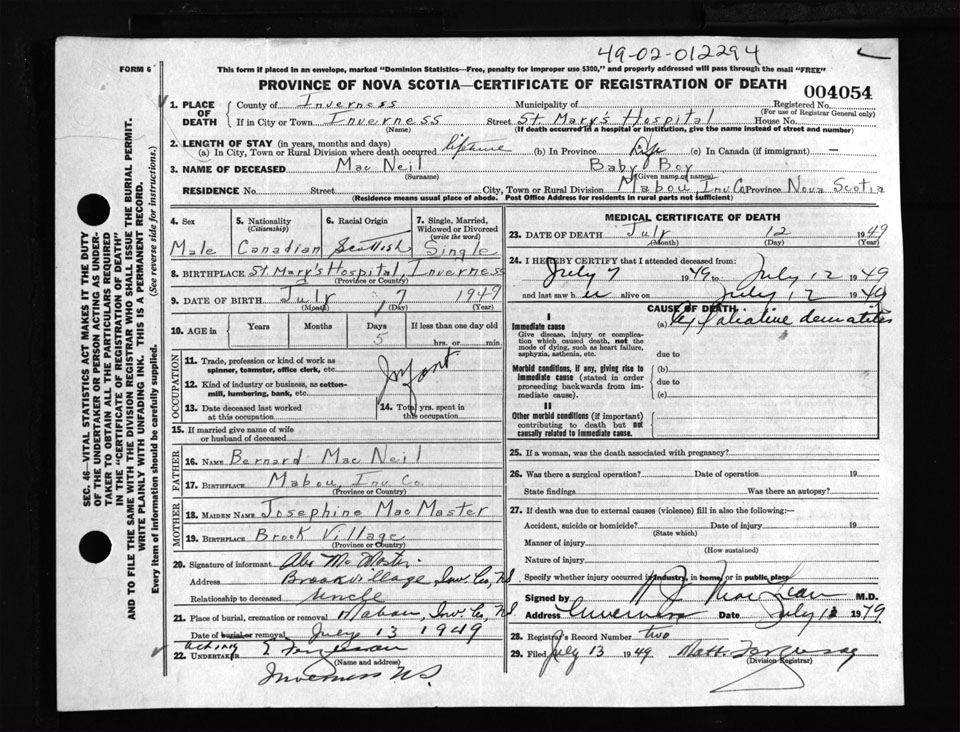 49-02-012294
FORM 6
This form if placed in an envelope, marked "Dominion Statistics—Free, penalty for improper use $300," and properly addressed will pass through the mail "FREE"
PROVINCE OF NOVA SCOTIA—CERTIFICATE OF REGISTRATION OF DEATH
004054
1. PLACE OF DEATH
County of Inverness Municipality of Registered No.
(For use of Registrar General only)
If in City or Town Inverness Street St Mary's Hospital House No.
(Name) (If death occurred in a hospital or institution, give the name instead of street and number)
2. LENGTH OF STAY (in years, months and days)
(a) In City, Town or Rural Division where death occurred lifetime (b) In Province Life (c) In Canada (if immigrant) —
3. NAME OF DECEASED Mac Neil Baby Boy
(Surname) (Given name or names)
RESIDENCE No. Street City, Town or Rural Division Mabou, Inv. Co Province Nova Scotia
(Residence means usual place of abode. Post Office Address for residents in rural parts not sufficient)
4. Sex
Male
5. Nationality (Citizenship)
Canadian
6. Racial Origin
Scottish
7. Single, Married, Widowed or Divorced (write the word)
Single
8. BIRTHPLACE St Mary's Hospital, Inverness
(Province or Country)
9. DATE OF BIRTH July 7 1949
(Month) (Day) (Year)
10. AGE in Years Months Days If less than one day old
5 hrs. or min.
OCCUPATION
11. Trade, profession or kind of work as spinner, teamster, office clerk, etc.
Infant
12. Kind of industry or business, as cotton-mill, lumbering, bank, etc.
13. Date deceased last worked at this occupation
14. Total yrs. spent in this occupation
15. If married give name of wife or husband of deceased
FATHER
16. NAME Bernard Mac Neil
17. BIRTHPLACE Mabou, Inv. Co.
(Province or Country)
MOTHER
18. MAIDEN NAME Josephine MacMaster
19. BIRTHPLACE Brook Village
(Province or Country)
20. Signature of informant
Address Brookvillage, Inv. Co, NS
Relationship to deceased Uncle
21. Place of burial, cremation or removal Mabou, Inv. Co, NS
Date of burial or removal July 13 1949
acting
22. UNDERTAKER
(Name and address)
Inverness N.S.
MEDICAL CERTIFICATE OF DEATH
23. DATE OF DEATH July 12 1949
(Month) (Day) (Year)
24. I HEREBY CERTIFY that I attended deceased from:
July 7 1949 to July 12 1949
and last saw h alive on July 12 1949
CAUSE OF DEATH
I
Immediate cause
Give disease, injury or complication which caused death, not the mode of dying, such as heart failure, asphyxia, asthenia, etc.
(a)
due to
Morbid conditions, if any, giving rise to immediate cause (stated in order proceeding backwards from immediate cause).
(b)
due to
(c)
II
Other morbid conditions (if important) contributing to death but not causally related to immediate cause.
25. If a woman, was the death associated with pregnancy?
26. Was there a surgical operation? Date of operation 19
State findings Was there an autopsy?
27. If death was due to external causes (violence) fill in also the following:—
Accident, suicide or homicide? Date of injury 19
(State which)
Manner of injury
(How sustained)
Nature of injury
Specify whether injury occurred in industry, in home, or in public place
Signed by M.D.
Address Inverness Date July
28. Registrar's Record Number two
29. Filed July 13 1949
(Division Registrar)
SEC. 46—VITAL STATISTICS ACT MAKES IT THE DUTY
OF THE UNDERTAKER OR PERSON ACTING AS UNDER-
TAKER TO OBTAIN ALL THE PARTICULARS REQUIRED
IN THE "CERTIFICATE OF REGISTRATION OF DEATH"
AND TO FILE THE SAME WITH THE DIVISION REGISTRAR WHO SHALL ISSUE THE BURIAL PERMIT.
WRITE PLAINLY WITH UNFADING INK. THIS IS A PERMANENT RECORD.
Every item of information should be carefully supplied. (See reverse side for instructions.)